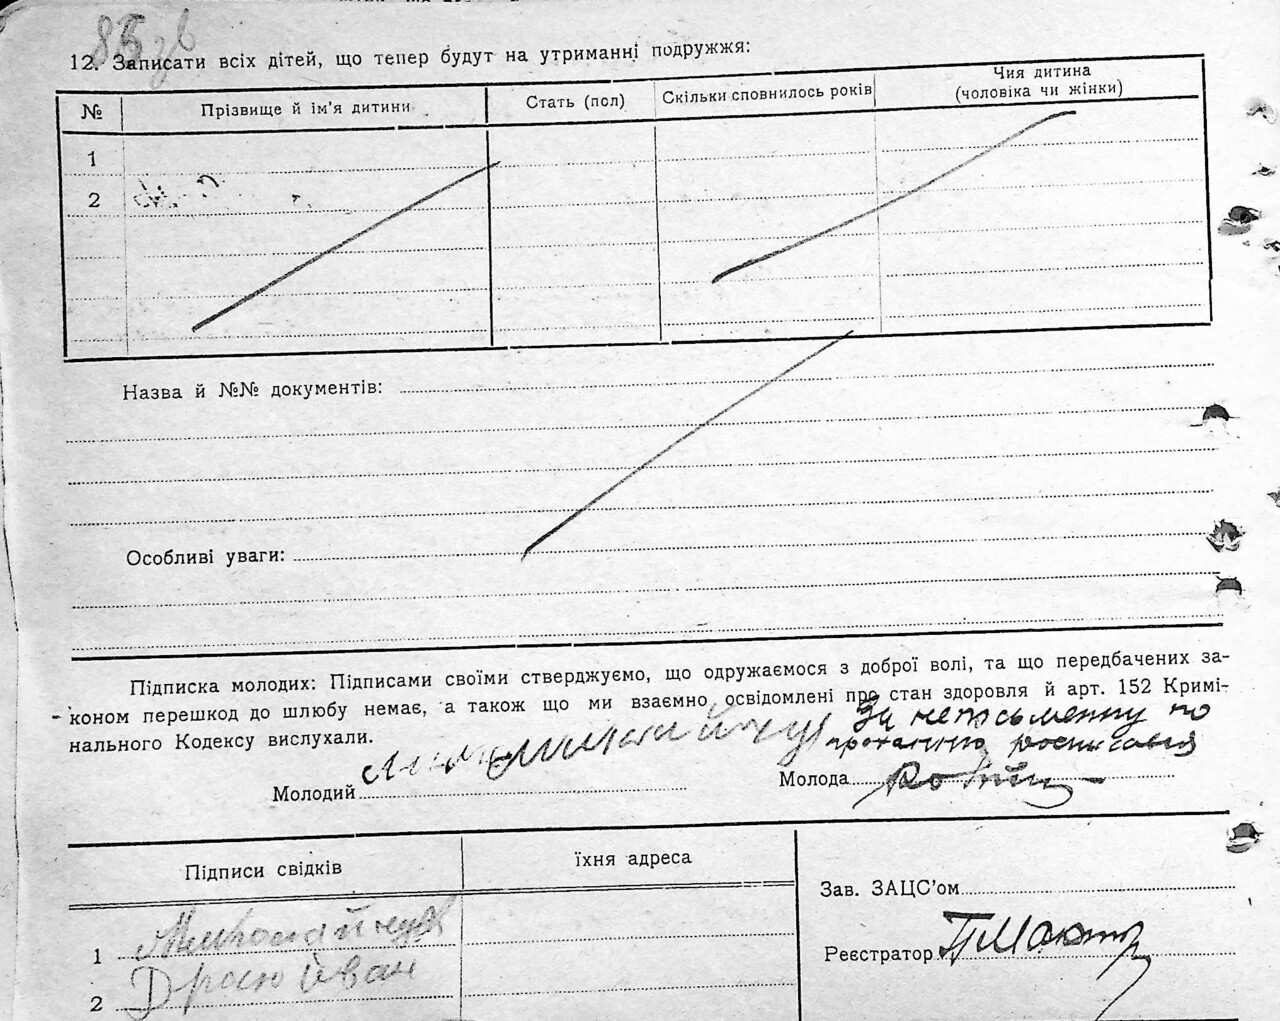 12. Записати всіх дітей, що тепер будут на утриманні подружжя:
№ Прізвище й ім'я дитини Стать (пол) Скільки сповнилось років Чия дитина
(чоловіка чи жінки)
1
2
Назва й №№ документів:
Особливі уваги:
Підписка молодих: Підписами своїми стверджуємо, що одружаємося з доброї волі, та що передбачених за-
коном перешкод до шлюбу немає, а також що ми взаємно освідомлені про стан здоровля й арт. 152 Кримі-
нального Кодексу вислухали.
За неписьменну по
Молодий
Молода
Підписи свідків їхня адреса
Зав. ЗАЦС'ом
Реєстратор
1
2 Іван